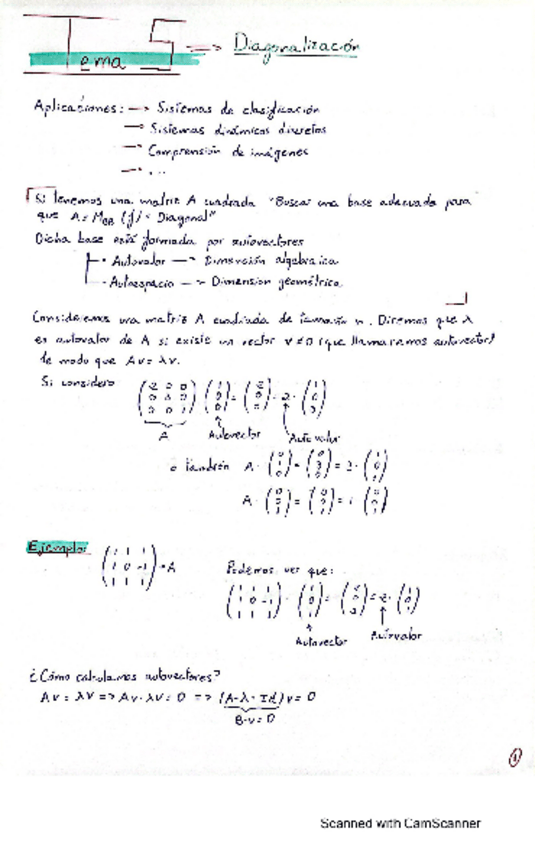 Tema 5 => Diagonalización
Aplicaciones: -> Sistemas de clasificación
-> Sistemas dinámicos discretos
-> Comprensión de imágenes
-> ...
Si tenemos una matriz A cuadrada "Buscar una base adecuada para
que A = M (f) = Diagonal"
Dicha base está formada por autovectores
· Autovalor -> Dimensión algebraica
· Autoespacio -> Dimensión geométrica
Consideremos una matriz A cuadrada de tamaño n. Diremos que λ
es autovalor de A si existe un vector v≠0 (que llamaremos autovector)
de modo que Av = λv.
Si considero
A Autovector Autovalor
o también A ·
A ·
Ejemplo
= A
Podemos ver que:
Autovector Autovalor
¿Cómo calculamos autovectores?
Av = λv => Av - λv = 0 => (A - λ · Id)v = 0
B·v = 0
1
Scanned with CamScanner